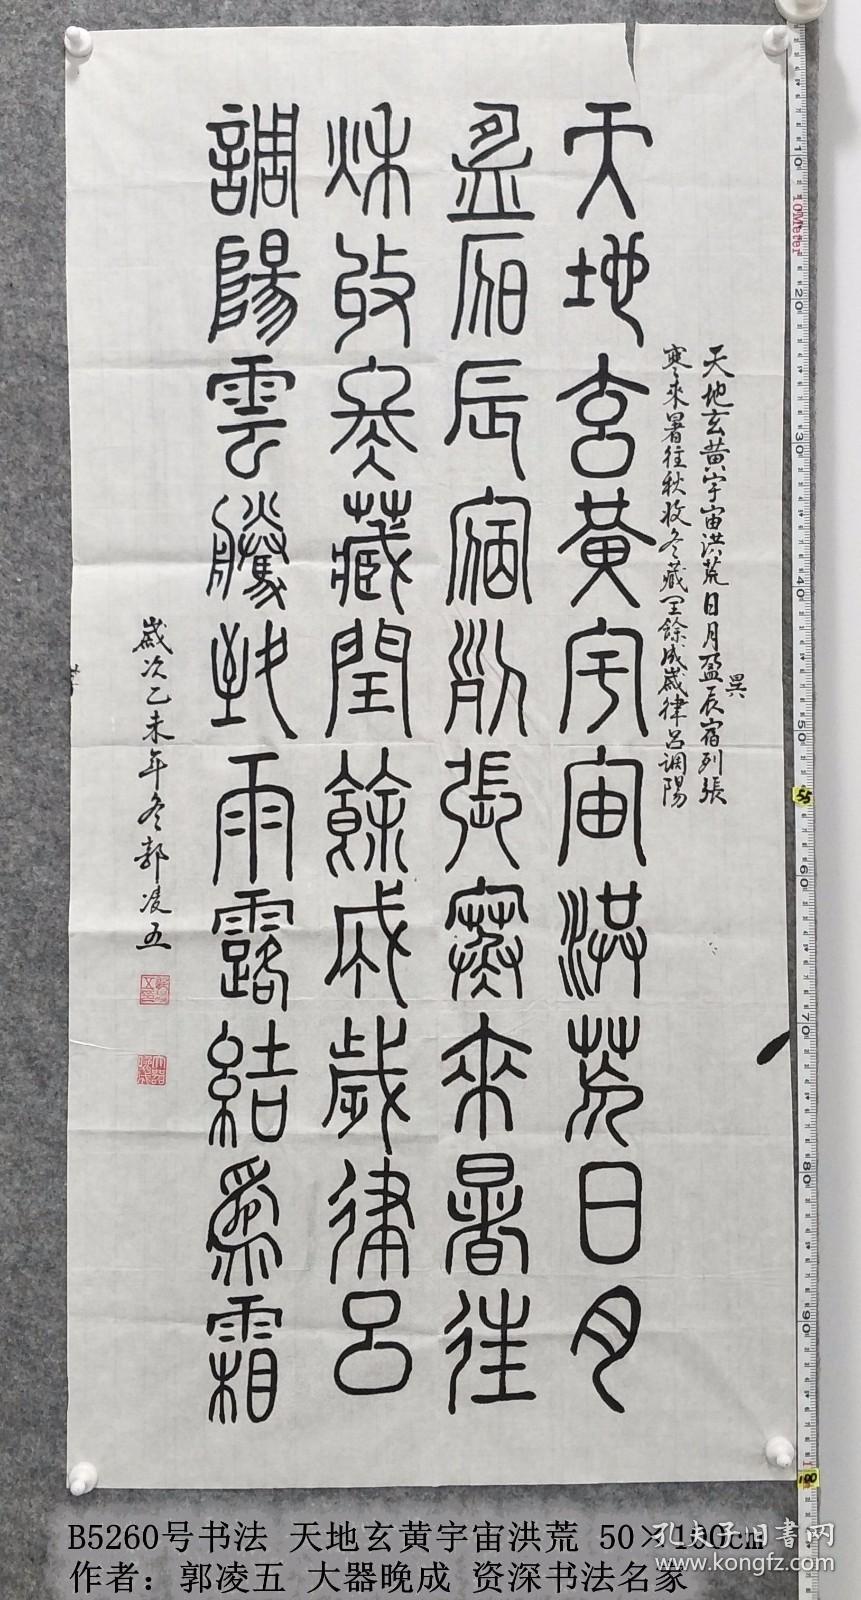 天地玄黄宇宙洪荒日月盈辰宿列張
昃
寒來暑往秋收冬藏闰餘成歲律呂调陽
天地玄黃宇宙洪荒日月
盈昃辰宿列張寒來暑往
秋收冬藏閏餘成歲律呂
調陽雲騰致雨露結爲霜
歲次乙未年冬郭凌五
10
10Meter
20
30
40
50
55
60
70
80
90
100
B5260号书法 天地玄黄宇宙洪荒 50×100cm
作者：郭凌五 大器晚成 资深书法名家
孔夫子旧书网
www.kongfz.com